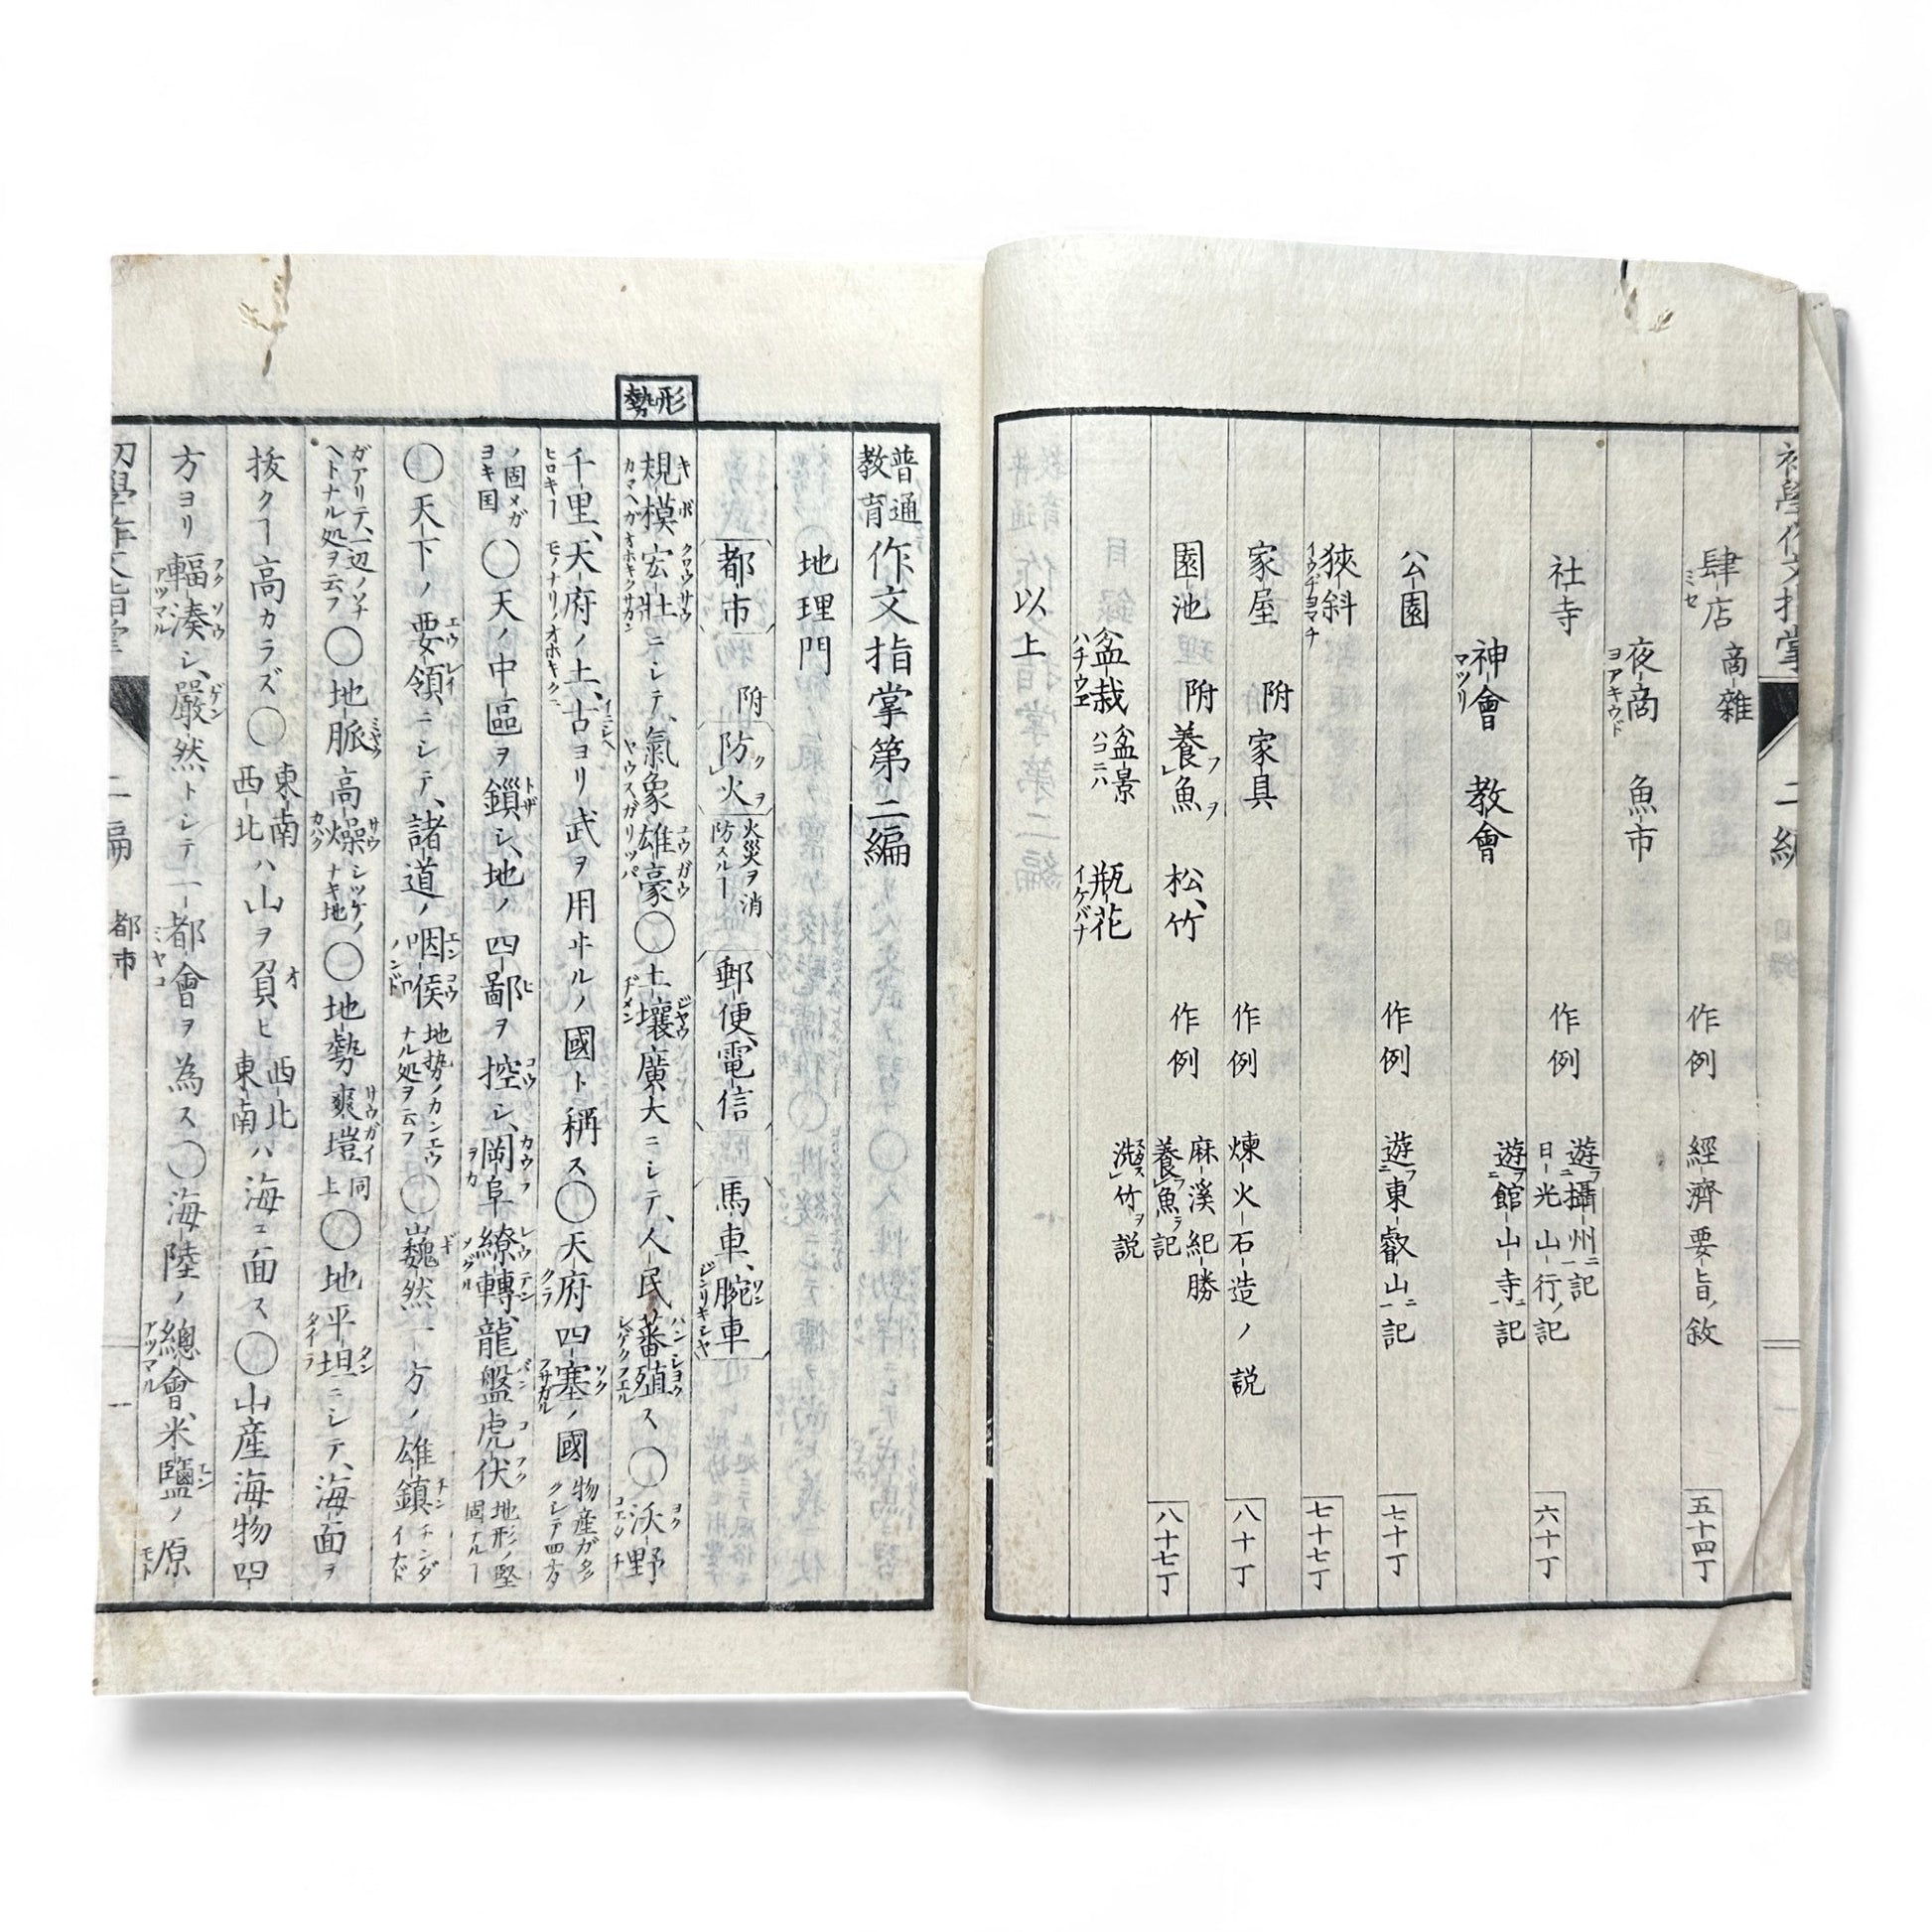 肆店 ミセ 商雜 作例 經濟要旨ノ敘 五十四丁
夜商 ヨアキウド 魚市
社寺 作例 遊攝州記 日光山行ノ記 六十丁
神會 マツリ 教會 遊館山寺記
公園 作例 遊東叡山記 七十丁
狹斜 イウヂヨマチ 七十七丁
家屋 附家具 作例 煉火石造ノ説 八十丁
園池 附養魚 松、竹 作例 麻溪紀勝 養魚記 八十七丁
盆栽 ハチウエ 盆景 ハコニハ 瓶花 イケバナ 竹ヲ説
以上
形勢
普通教育 作文指掌第二編
地理門
都市 附 防火 火災ヲ消防スルヿ 郵便、電信 馬車、腕車 ジンリキシヤ
規模宏壯ニシテ、氣象雄豪〇土壤廣大ニシテ、人民蕃殖ス〇沃野
千里、天府ノ土、古ヨリ武ヲ用ヰルノ國ト稱ス〇天府四塞ノ國 物産ガ多クシテ四方
ノ固メガヨキ国〇天ノ中區ヲ鎖シ、地ノ四鄙ヲ控シ、岡阜繚轉、龍盤虎伏 地形ノ堅固ナルヿ
〇天下ノ要領ニシテ、諸道ノ咽侯 地勢ノカンエウナル処ヲ云フ〇巍然一方ノ雄鎮
ガアリテ、一辺ノソナヘトナル処ヲ云フ〇地脈高燥 シツケノナキ地〇地勢爽塏 同上〇地平坦ニシテ、海面ヲ
抜クヿ高カラズ〇東南西北ハ山ヲ負ヒ西北東南ハ海ニ面ス〇山産海物四
方ヨリ輻湊シ、嚴然トシテ一都會ヲ為ス〇海陸ノ總會、米鹽ノ原
初學作文指掌 二編 都市 一